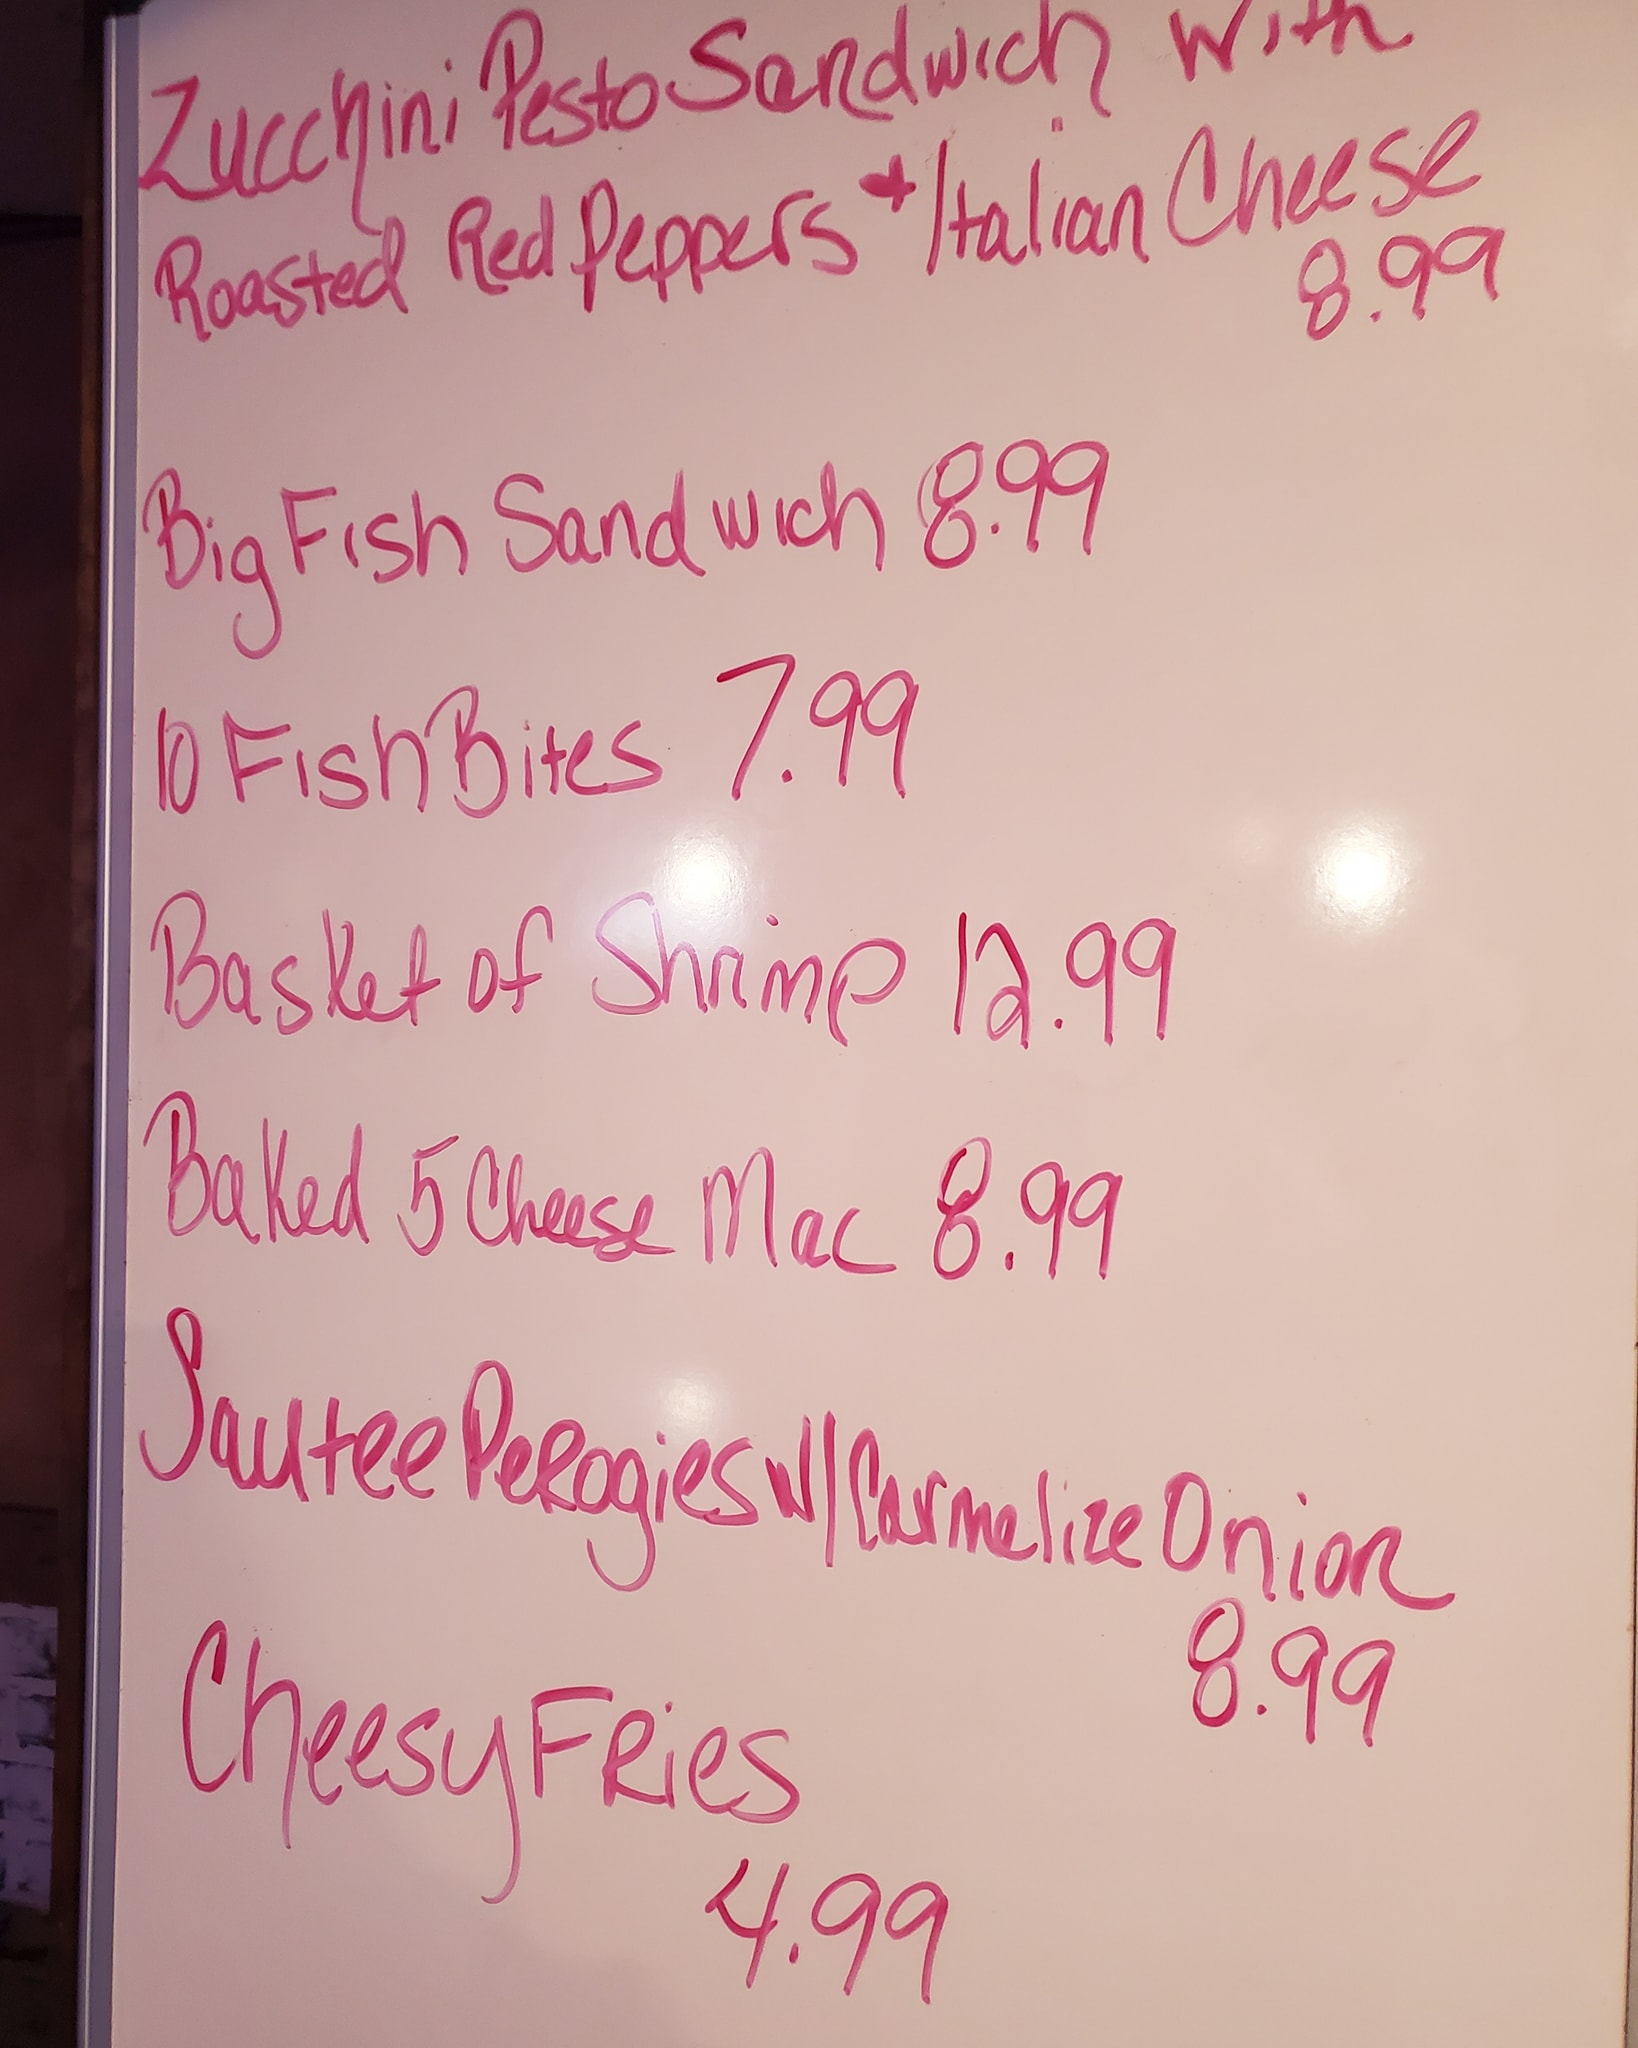 Zucchini Pesto Sandwich With
Roasted Red Peppers + Italian Cheese
8.99
Big Fish Sandwich 8.99
10 Fish Bites 7.99
Basket of Shrimp 12.99
Baked 5 Cheese Mac 8.99
Sautee Perogies w/ Carmelize Onion
8.99
Cheesy Fries
4.99